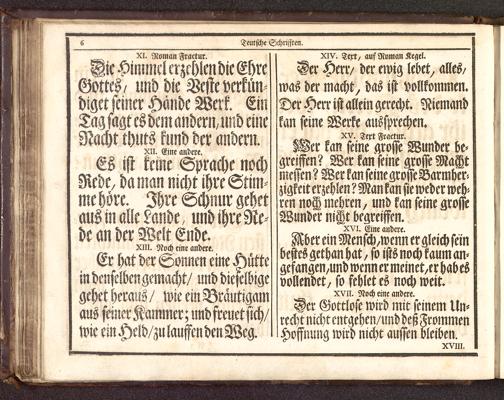 6
Teutsche Schrifften.
XI. Roman Fractur.
Die Himmel erzehlen die Ehre
Gottes, und die Veste verkün-
diget seiner Hände Werk. Ein
Tag sagt es dem andern, und eine
Nacht thuts kund der andern.
XII. Eine andere.
Es ist keine Sprache noch
Rede, da man nicht ihre Stim-
me höre. Ihre Schnur gehet
aus in alle Lande, und ihre Re-
de an der Welt Ende.
XIII. Noch eine andere.
Er hat der Sonnen eine Hütte
in denselben gemacht/ und dieselbige
gehet heraus/ wie ein Bräutigam
aus seiner Kammer; und freuet sich/
wie ein Held/ zu lauffen den Weg.
XIV. Text, auf Roman Kegel.
Der Herr/ der ewig lebet, alles,
was der macht, das ist vollkommen.
Der Herr ist allein gerecht. Niemand
kan seine Werke aussprechen.
XV. Text Fractur.
Wer kan seine grosse Wunder be-
greiffen? Wer kan seine grosse Macht
messen? Wer kan seine grosse Barmher-
zigkeit erzehlen? Man kan sie weder weh-
ren noch mehren, und kan seine grosse
Wunder nicht begreiffen.
XVI. Eine andere.
Aber ein Mensch, wenn er gleich sein
bestes gethan hat, so ists noch kaum an-
gefangen, und wenn er meinet, er hab es
vollendet, so fehlet es noch weit.
XVII. Noch eine andere.
Der Gottlose wird mit seinem Un-
recht nicht entgehen/ und deß Frommen
Hoffnung wird nicht aussen bleiben.
XVIII.